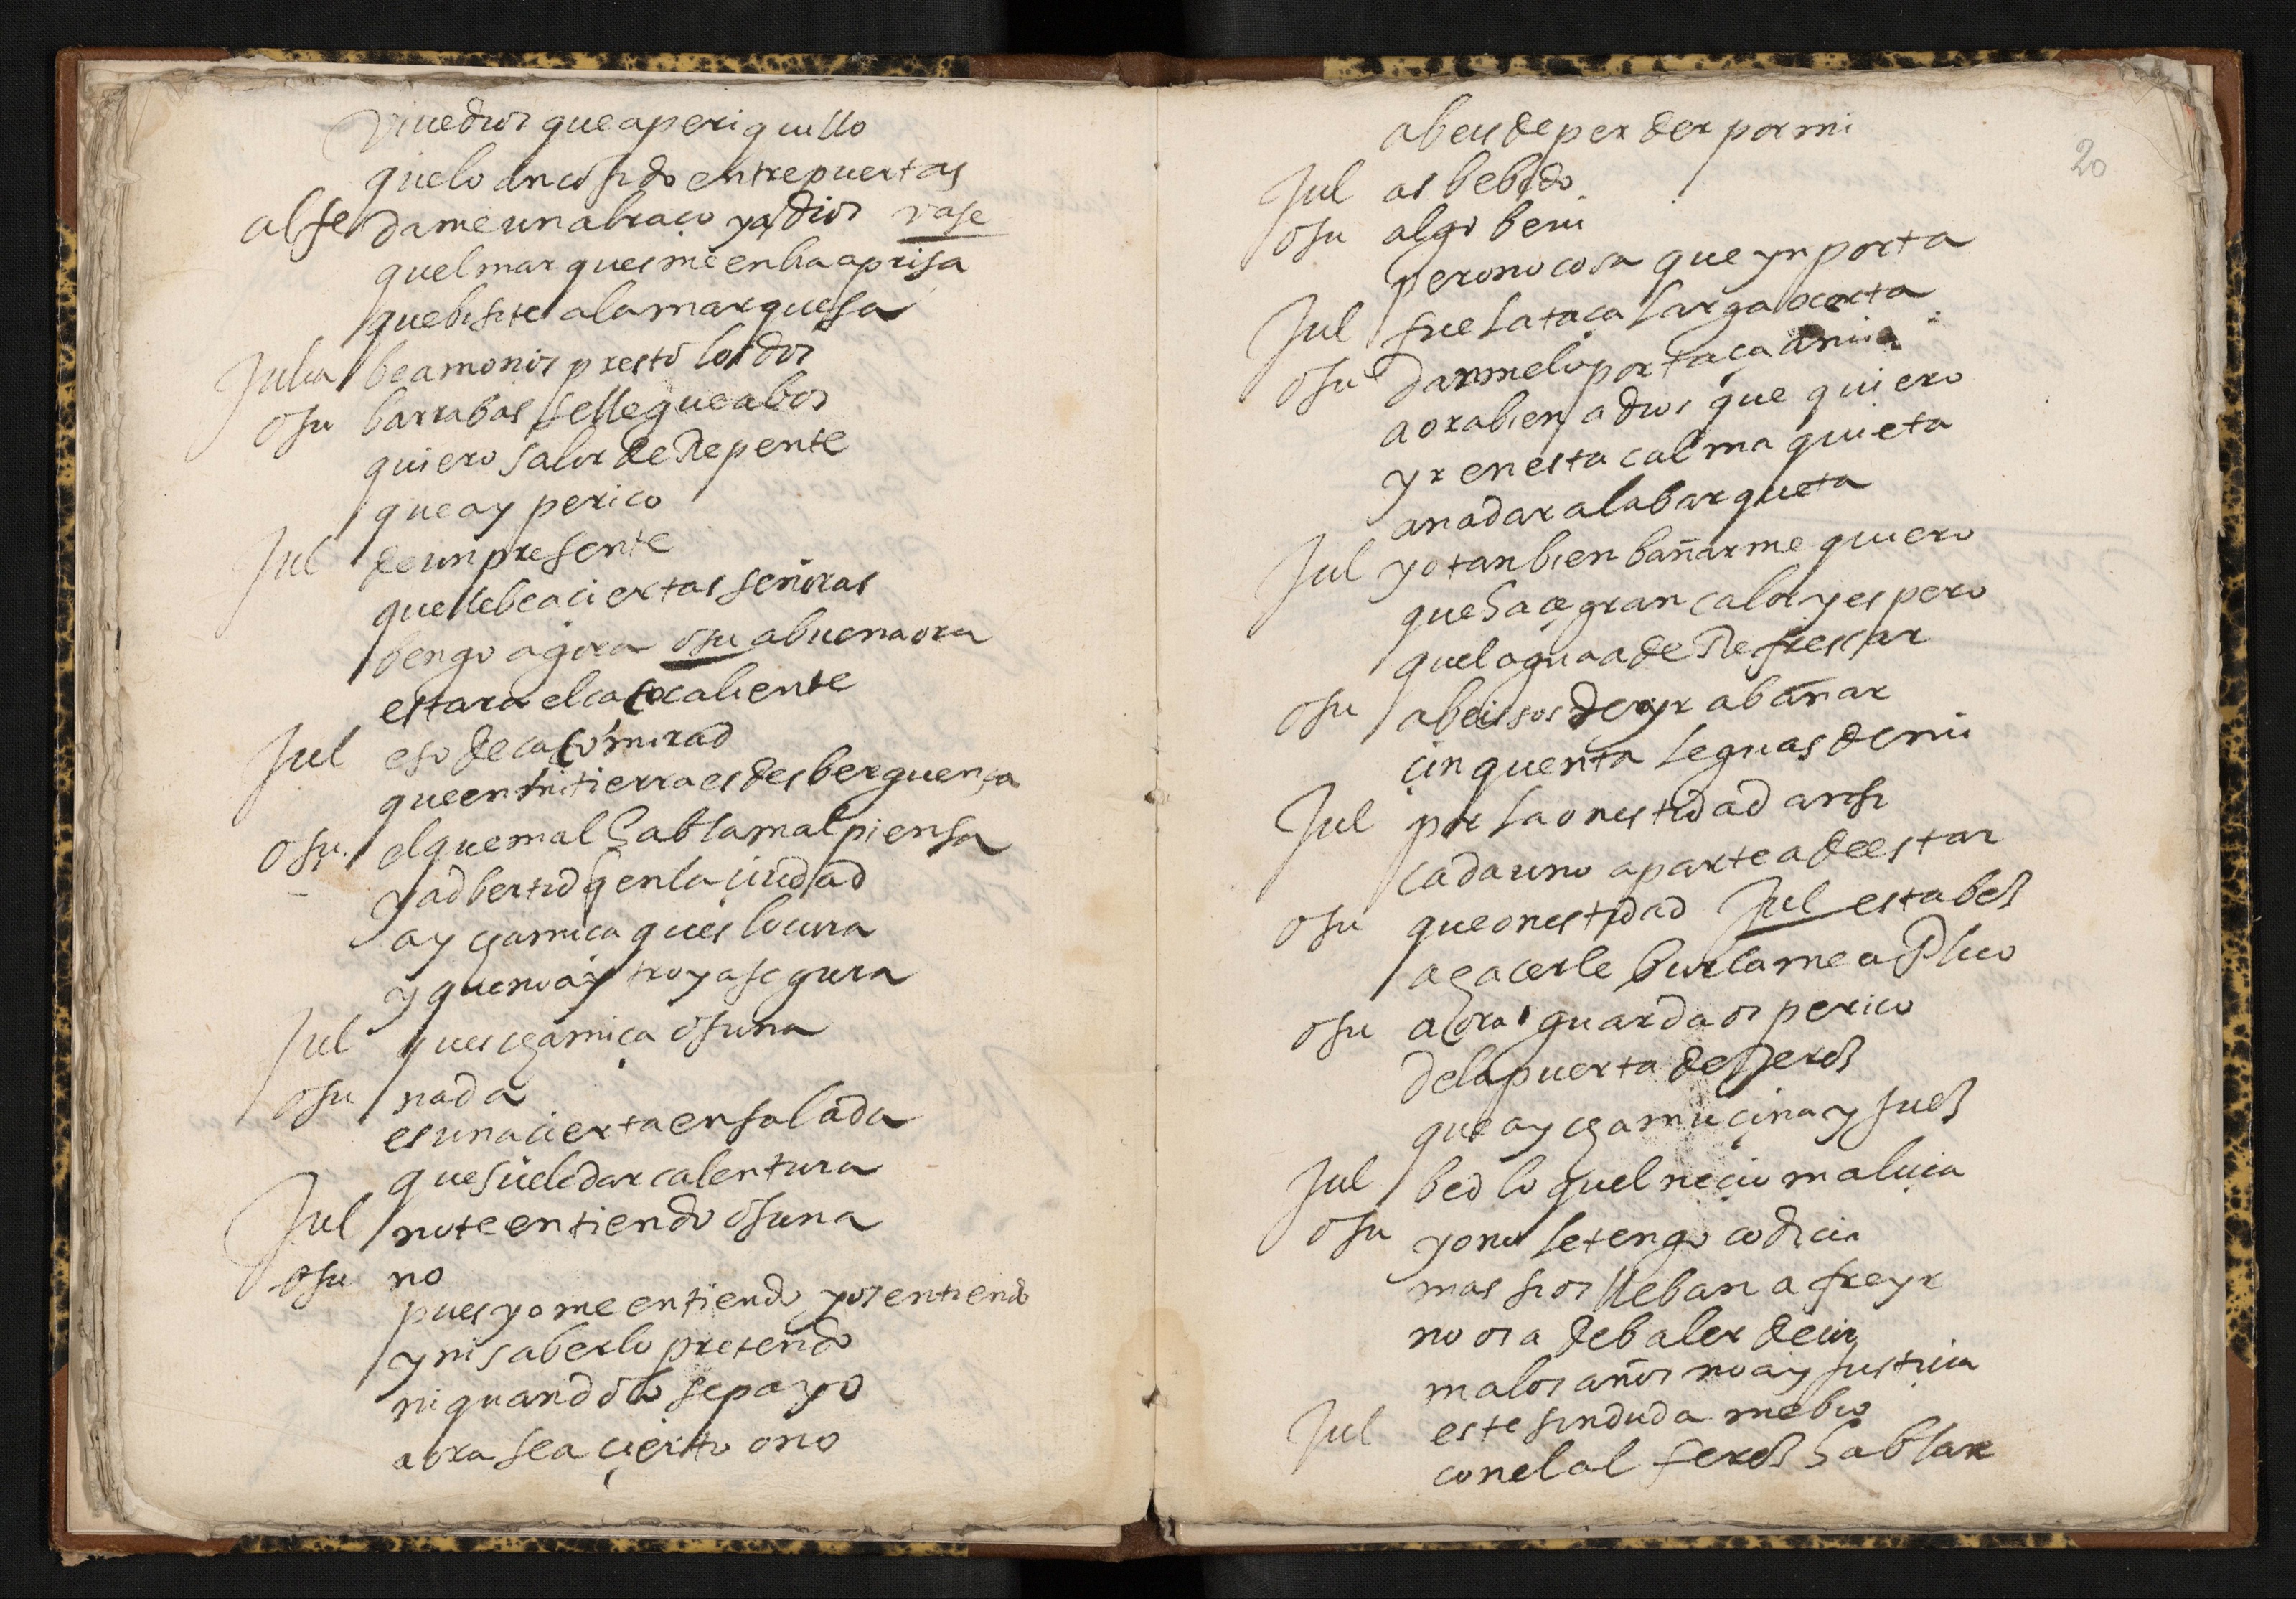 viuedios queaperiquillo
quelo ancojido entrepuertas
alfe dameunabraço yadios vase
quelmarques me enbiaaprisa
quebisite alamarquesa
Julia beamonos presto los dos
osu barrabas sellegueabos
quiero salir de Repente
queay perico
Jul deunpresente
quellebeaciertas señoras
bengo agora osu abuenaora
estara elcaçocaliente
Jul eso decaço mirad
queenmitierraesdesberguença
osu elquemal hablamalpiensa
yadbertid q enla ciudad
ay chamiça ques locura
yquenoay troyasegura
Jul ques chamiça osuna
osu nada
esunaciertaensalada
quesueledarcalentura
Jul noteentiendo osuna
osu no
pues yo me entiendo yosentiendo
yni saberlo pretendo
niquandolo sepayo
aora sea çierto ono
20
abeis deperder por mi
Jul as bebido
osu algo beui
perono cosa que ynporta
Jul fue lataça larga ocorta
osu danmelo por taça ami
aorabien adios que quiero
yr enesta calma quieta
anadaralabarqueta
Jul yotanbien bañarme quiero
quehaçe gran calor yespero
quelaguaade Refrescar
osu abeisos deyr abañar
çinquenta leguas demi
Jul por laonestidad ansi
cadauno aparteadeestar
osu queonestidad Jul estabes
ahacerle burlameaplico
osu aora guardaos perico
delapuerta dexerez
que ay chamuçina y juez
Jul bed lo quel neçio maliçia
osu yono letengo codiçia
mas sios lleban a freyr
no os a debaler deçir
malos años noay justiçia
Jul este sinduda mebio
conelal ferez hablar